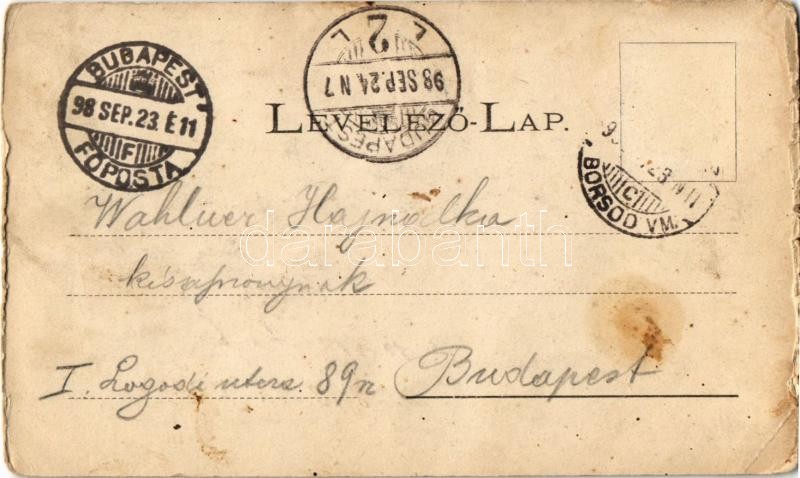 BUDAPEST
98 SEP. 23. É 11
F
FŐPOSTA
L 2 L
98 SEP. 24. N 7
BUDAPEST
LEVELEZŐ-LAP.
23 N 11
C
BORSOD VM.
Wahlner Hajnalka
kisasszonynak
I. Logodi utcza 89 Budapest
darabanth